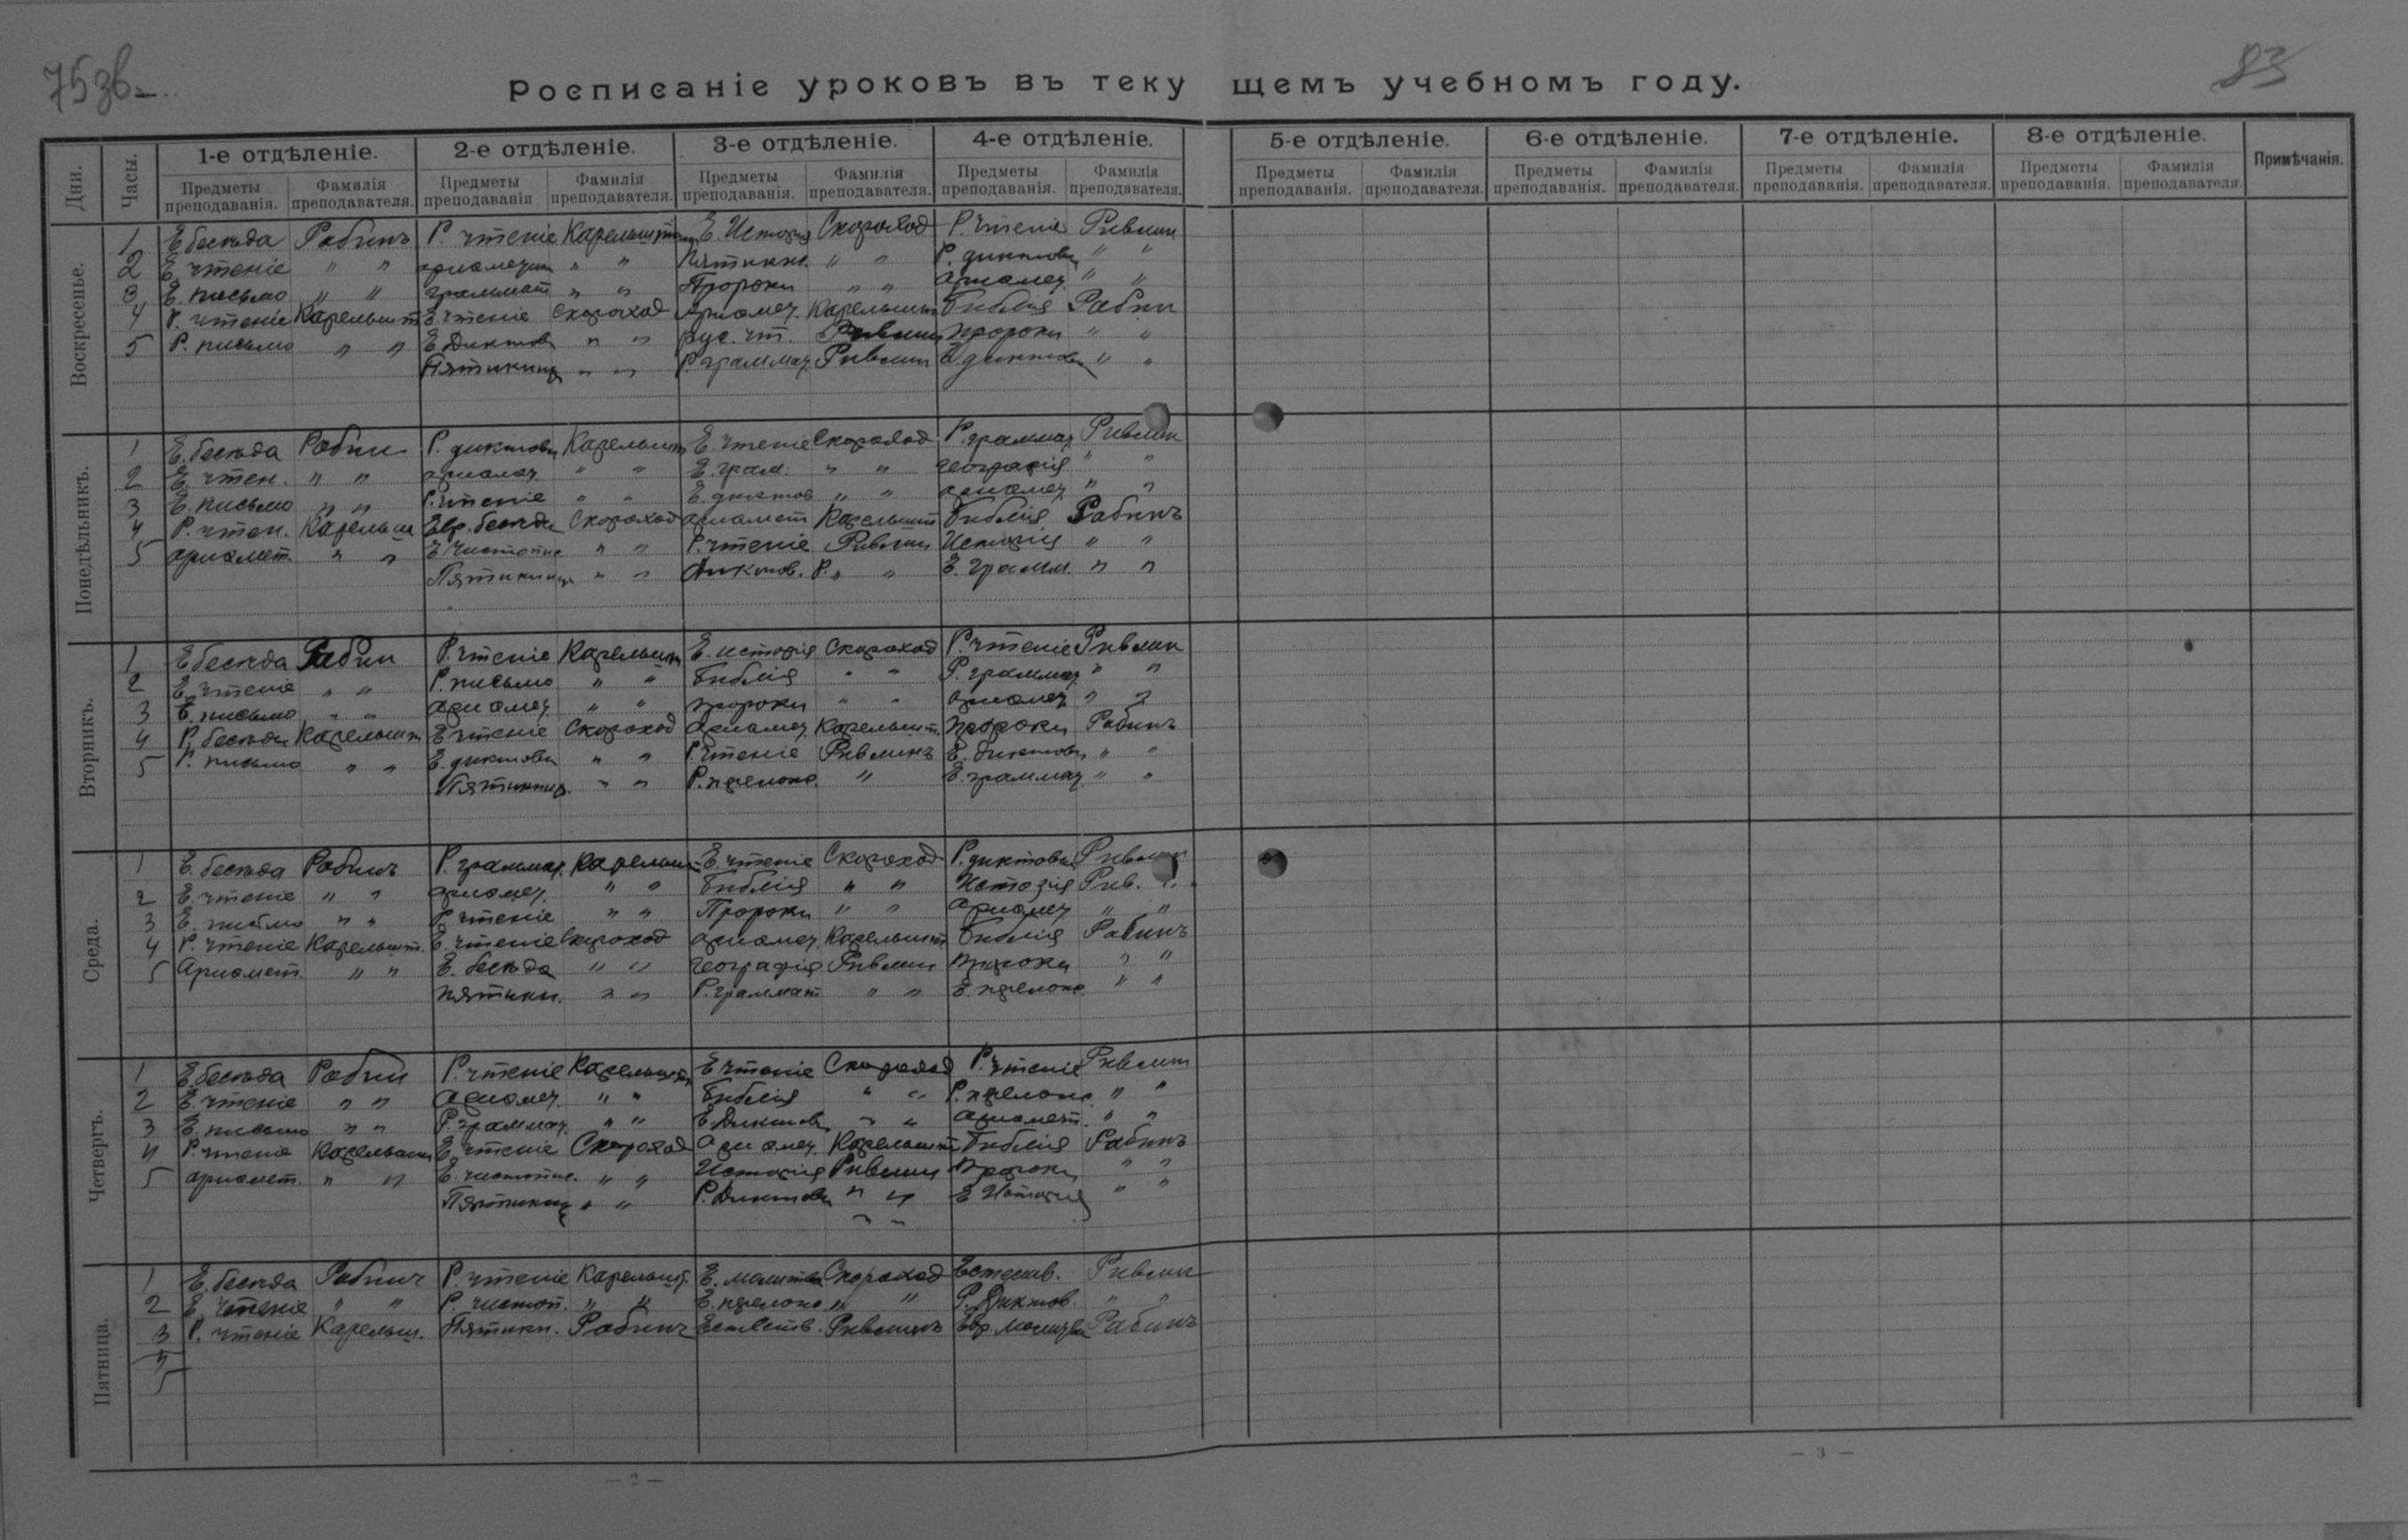 75зв.
83
Росписаніе уроковъ въ текущемъ учебномъ году.
Дни. Часы. 1-е отдѣленіе. 2-е отдѣленіе. 3-е отдѣленіе. 4-е отдѣленіе. 5-е отдѣленіе. 6-е отдѣленіе. 7-е отдѣленіе. 8-е отдѣленіе. Примѣчанія.
Предметы преподаванія. Фамилія преподавателя. Предметы преподаванія Фамилія преподавателя. Предметы преподаванія. Фамилія преподавателя. Предметы преподаванія. Фамилія преподавателя. Предметы преподаванія. Фамилія преподавателя. Предметы преподаванія. Фамилія преподавателя. Предметы преподаванія. Фамилія преподавателя. Предметы преподаванія. Фамилія преподавателя.
Воскресенье.
1 Е бесѣда Рабинъ Р. чтеніе Карельштейн Е. Исторія Скороход Р. чтеніе Ривлин
2 Е. чтеніе " " ариѳметик " " Пятикн. " " Р. диктовк " "
3 Е. письмо " " граммат " " Пророки " " ариѳмет " "
4 Р. чтеніе Карельшт Е чтеніе Скороход Ариѳмет. Карельшт Библія Рабин
5 Р. письмо " " Е Диктовк " " рус. чт. Ривлин пророки " "
Пятикниж " " Р. граммат Ривлин Е диктовк " "
Понедѣльникъ.
1 Е. бесѣда Рабин Р. диктовк Карельшт Е. чтеніе Скороход Р. граммат Ривлин
2 Е. чтен. " " ариѳмет " " Е. грам. " " географія " "
3 Е. письмо " " Р. чтеніе " " Е. диктов " " ариѳмет " "
4 Р. чтен. Карельш Евр. бесѣда Скороход ариѳмет Карельшт Библія Рабинъ
5 ариѳмет. " " Е Чистопис " " Р. чтеніе Ривлин Исторія " "
Пятикниж " " Диктов. Р. " " Е. Грамм. " "
Вторникъ.
1 Е бесѣда Рабин Р. чтеніе Карельшт Е. исторія Скороход Р. чтеніе Ривлин
2 Е. чтеніе " " Р. письмо " " Библія " " Р. граммат " "
3 Е. письмо " " ариѳмет. " " пророки " " ариѳмет " "
4 Р. бесѣда Карельшт Е чтеніе Скороход Ариѳмет Карельшт. пророки Рабинъ
5 Р. письмо " " Е. диктовк " " Р. чтеніе Ривлинъ Е. диктовк " "
Пятикниж. " " Р. прелож. " Е. граммат. " "
Среда.
1 Е. бесѣда Рабинъ Р. граммат. Карельшт Е. чтеніе Скороход Р. диктовк Ривлин
2 Е. чтеніе " " ариѳмет. " " Библія " " Исторія Рив. "
3 Е. письмо " " Р. чтеніе " " Пророки " " Ариѳмет " "
4 Р. чтеніе Карельшт. Е. чтеніе Скороход ариѳмет. Карельшт Библія Рабинъ
5 Ариѳмет. " " Е. бесѣда " " географія Ривлин пророки " "
пятикн. " " Р. граммат " " Е. прелож. " "
Четвергъ.
1 Е. бесѣда Рабин Р. чтеніе Карельшт Е чтеніе Скороход Р. чтеніе Ривлин
2 Е. чтеніе " " Ариѳмет. " " Библія " " Р. прелож. " "
3 Е. письмо " " Р. граммат. " " Е Диктовк " " Ариѳмет. " "
4 Р. чтеніе Карельшт Е. чтеніе Скороход Ариѳмет. Карельшт Библія Рабинъ
5 ариѳмет. " " Е. чистопис. " " Исторія Ривлин Пророки " "
Пятикниж " " Р. Диктовк " " Е Исторія " "
" "
Пятница.
1 Е. бесѣда Рабинъ Р. чтеніе Карельшт. Е. молитва Скороход Естеств. Ривлин
2 Е. чтеніе " " Р. чистоп. " " Е. прелож. " " Р. Диктов. " "
3 Р. чтеніе Карельш. Пятикн. Рабинъ Естеств. Ривлинъ Евр. молитва Рабинъ
4
5
— 2 —
— 3 —